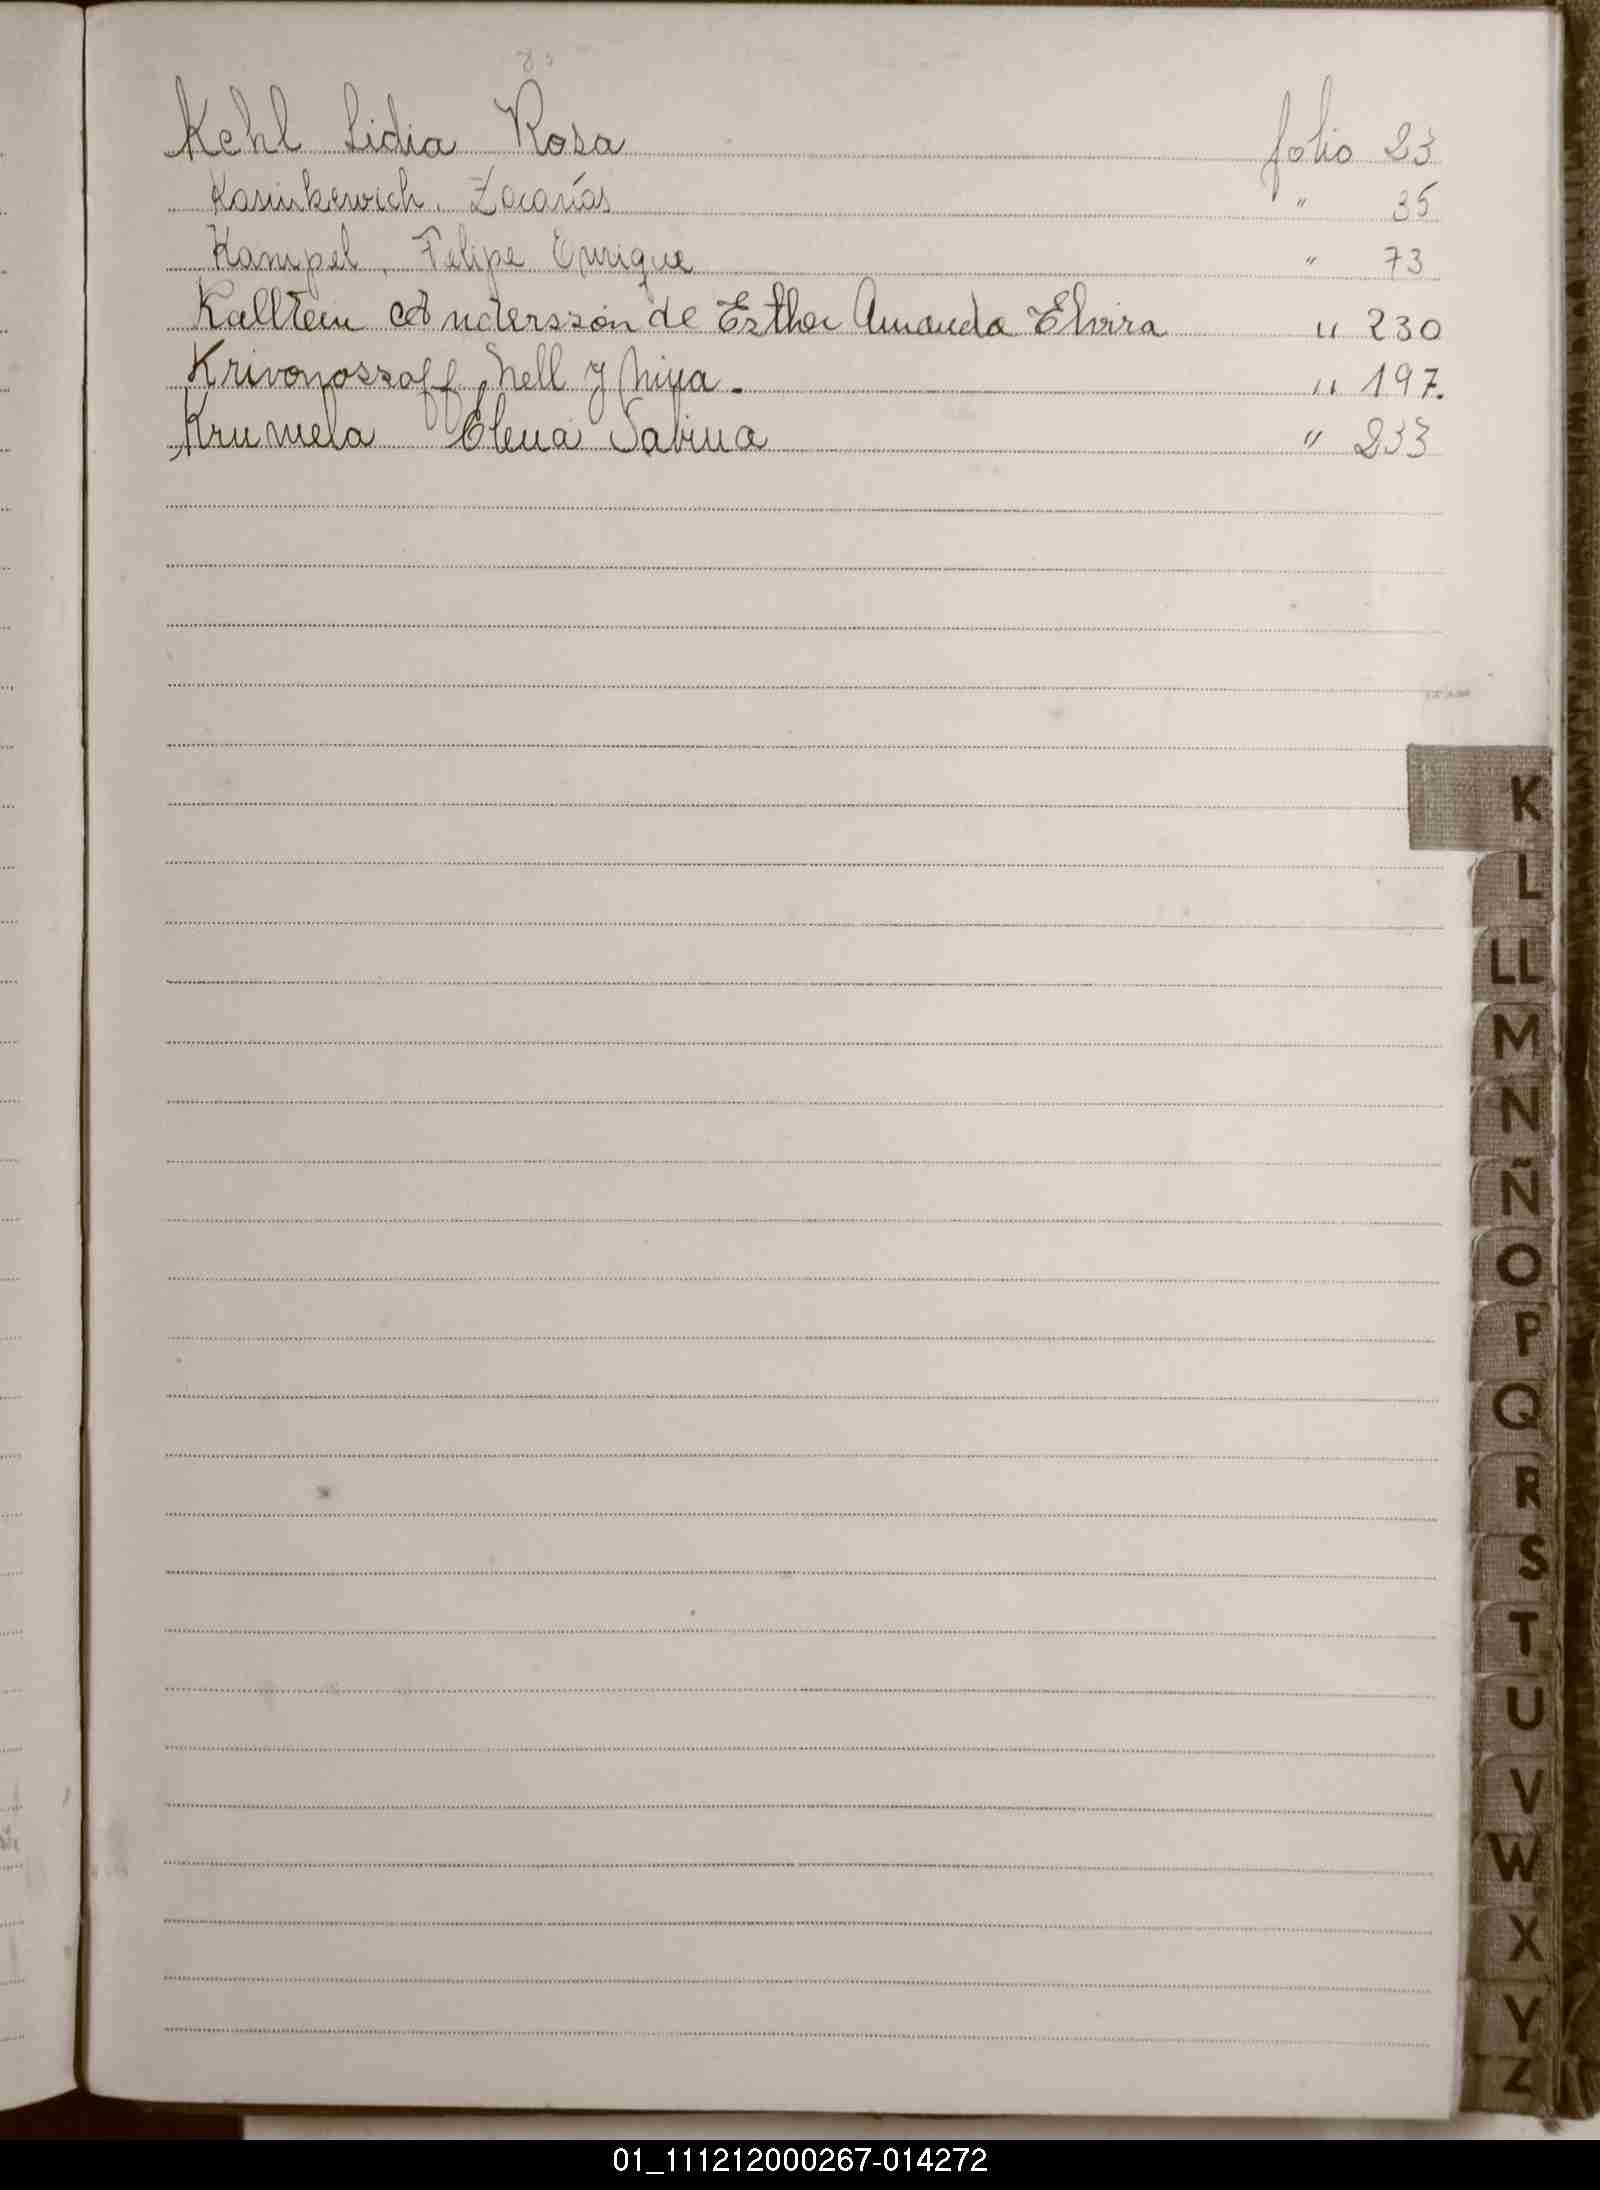 Kehl Lidia Rosa folio 23
Kasinkewich, Zacarías " 35
Kampel, Felipe Enrique " 73
Kalltein Andersson de Esther Amanda Elvira " 230
Krivonossoff, Nell y Niya. " 197.
Krumela Elena Sabina " 233
K
L
LL
M
N
Ñ
O
P
Q
R
S
T
U
V
W
X
Y
Z
01_111212000267-014272